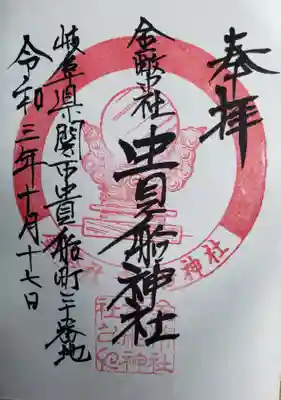 奉拝
金幣社
貴船神社
岐阜県関市貴船町二十番地
令和三年十月十七日
神社